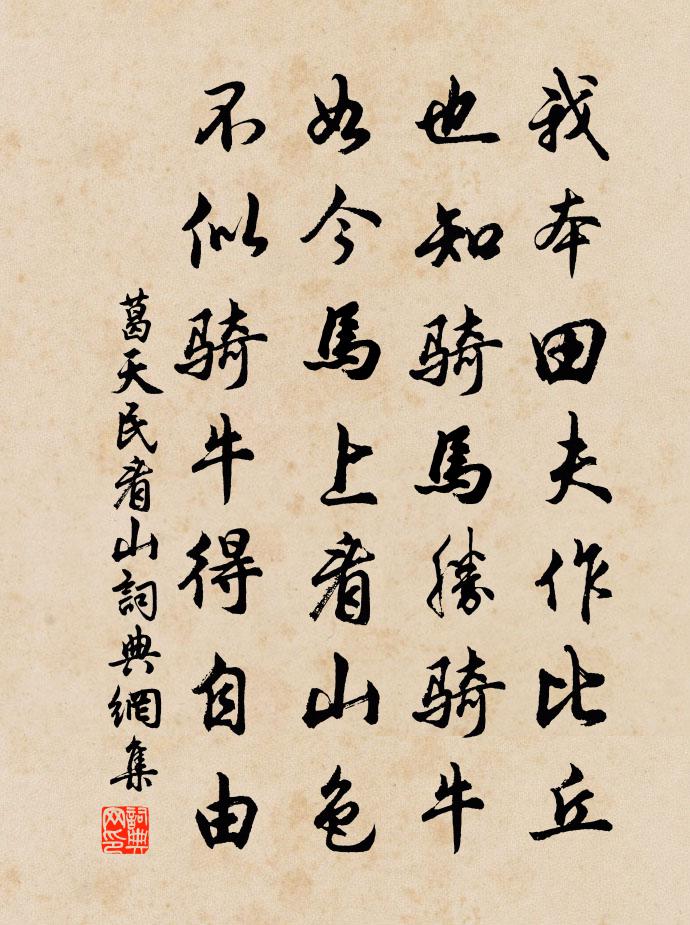 我本田夫作比丘
也知骑馬勝骑牛
如今馬上看山色
不似骑牛得自由
葛天民看山詞典網集
詞典网印